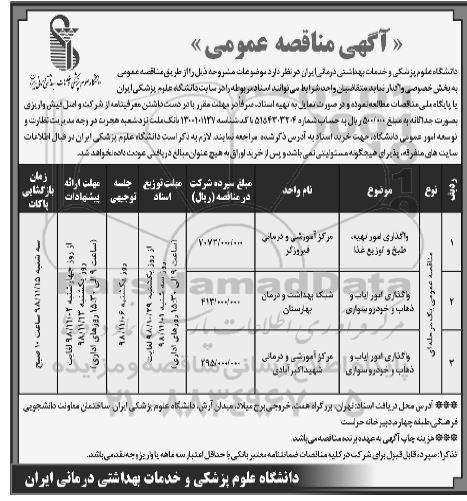 « آگهی مناقصه عمومی »
دانشگاه علوم پزشکی و خدمات بهداشتی درمانی ایران در نظر دارد موضوعات مشروحه ذیل را از طریق مناقصه عمومی
به بخش خصوصی واگذار نماید متقاضیان واجد شرایط می توانند اسناد مربوطه را در سایت دانشگاه علوم پزشکی ایران
یا پایگاه ملی مناقصات مطالعه نموده و در صورت تمایل به تهیه اسناد، صرفاً در مهلت مقرر با در دست داشتن معرفینامه از شرکت و اصل فیش واریزی
بصورت جداگانه به مبلغ ۵۰۰/۰۰۰ ریال به شماره حساب
بانک ملت نزد شعبه هجرت در وجه مدیریت نظارت و
توسعه امور عمومی دانشگاه، جهت خرید اسناد به آدرس ذکر شده مراجعه نمایند. لازم به ذکر است دانشگاه علوم پزشکی ایران در قبال اطلاعات
سایت های متفرقه، پذیرای هیچگونه مسئولیتی نمی باشد و پس از خرید اوراق به هیچ عنوان مبالغ دریافتی عودت داده نخواهد شد.
ردیف نوع موضوع نام واحد مبلغ سپرده شرکت در مناقصه (ریال) مهلت توزیع اسناد جلسه توجیهی مهلت ارائه پیشنهادات زمان بازگشایی پاکات
مناقصه عمومی یک مرحله ای
۱ واگذاری امور تهیه، طبخ و توزیع غذا مرکز آموزشی و درمانی فیروزگر ۷۰۷۳/۰۰۰/۰۰۰
۲ واگذاری امور ایاب و ذهاب و خودرو سواری شبکه بهداشت و درمان بهارستان ۴۱۳/۰۰۰/۰۰۰
۳ واگذاری امور ایاب و ذهاب و خودرو سواری مرکز آموزشی و درمانی شهید اکبرآبادی ۲۹۵/۰۰۰/۰۰۰
از روز یکشنبه ۹۸/۱۰/۲۹ لغایت روز یکشنبه
(ساعت ۹ الی ۱۵:۳۰ روزهای اداری)
روز یکشنبه ۹۸/۱۱/۰۶
از روز چهارشنبه ۹۸/۱۱/۰۲ لغایت روز یکشنبه ۹۸/۱۱/۱۳
(ساعت ۹ الی ۱۵:۳۰ روزهای اداری)
سه شنبه ۹۸/۱۱/۱۵ ساعت ۱۰ صبح
*** آدرس محل دریافت اسناد: تهران، بزرگراه همت، خروجی برج میلاد، میدان آرش، دانشگاه علوم پزشکی ایران ساختمان معاونت دانشجویی
فرهنگی طبقه چهارم دبیرخانه حراست
*** هزینه چاپ آگهی به عهده برنده مناقصه می باشد.
تذکر: سپرده قابل قبول برای شرکت در کلیه مناقصات ضمانتنامه معتبر بانکی با حداقل اعتبار سه ماهه یا واریز وجه نقد می باشد.
دانشگاه علوم پزشکی و خدمات بهداشتی درمانی ایران